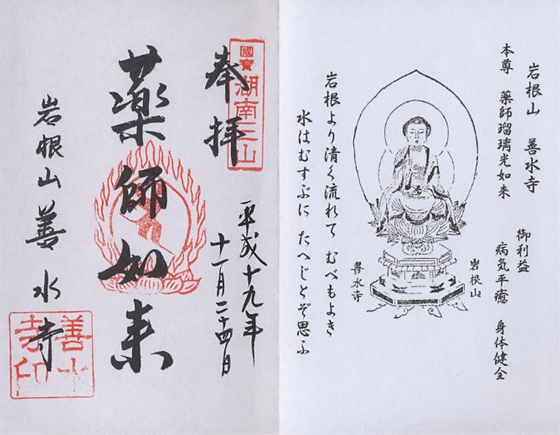 岩根山 善水寺
本尊 薬師瑠璃光如来
御利益
病気平癒 身体健全
岩根山
善水寺
岩根より清く流れて むべもよき
水はむすぶに たへじとぞ思ふ
國寶
湖南三山
奉拝
平成十九年
十一月二十四日
薬師如来
岩根山善水寺
善水
寺印